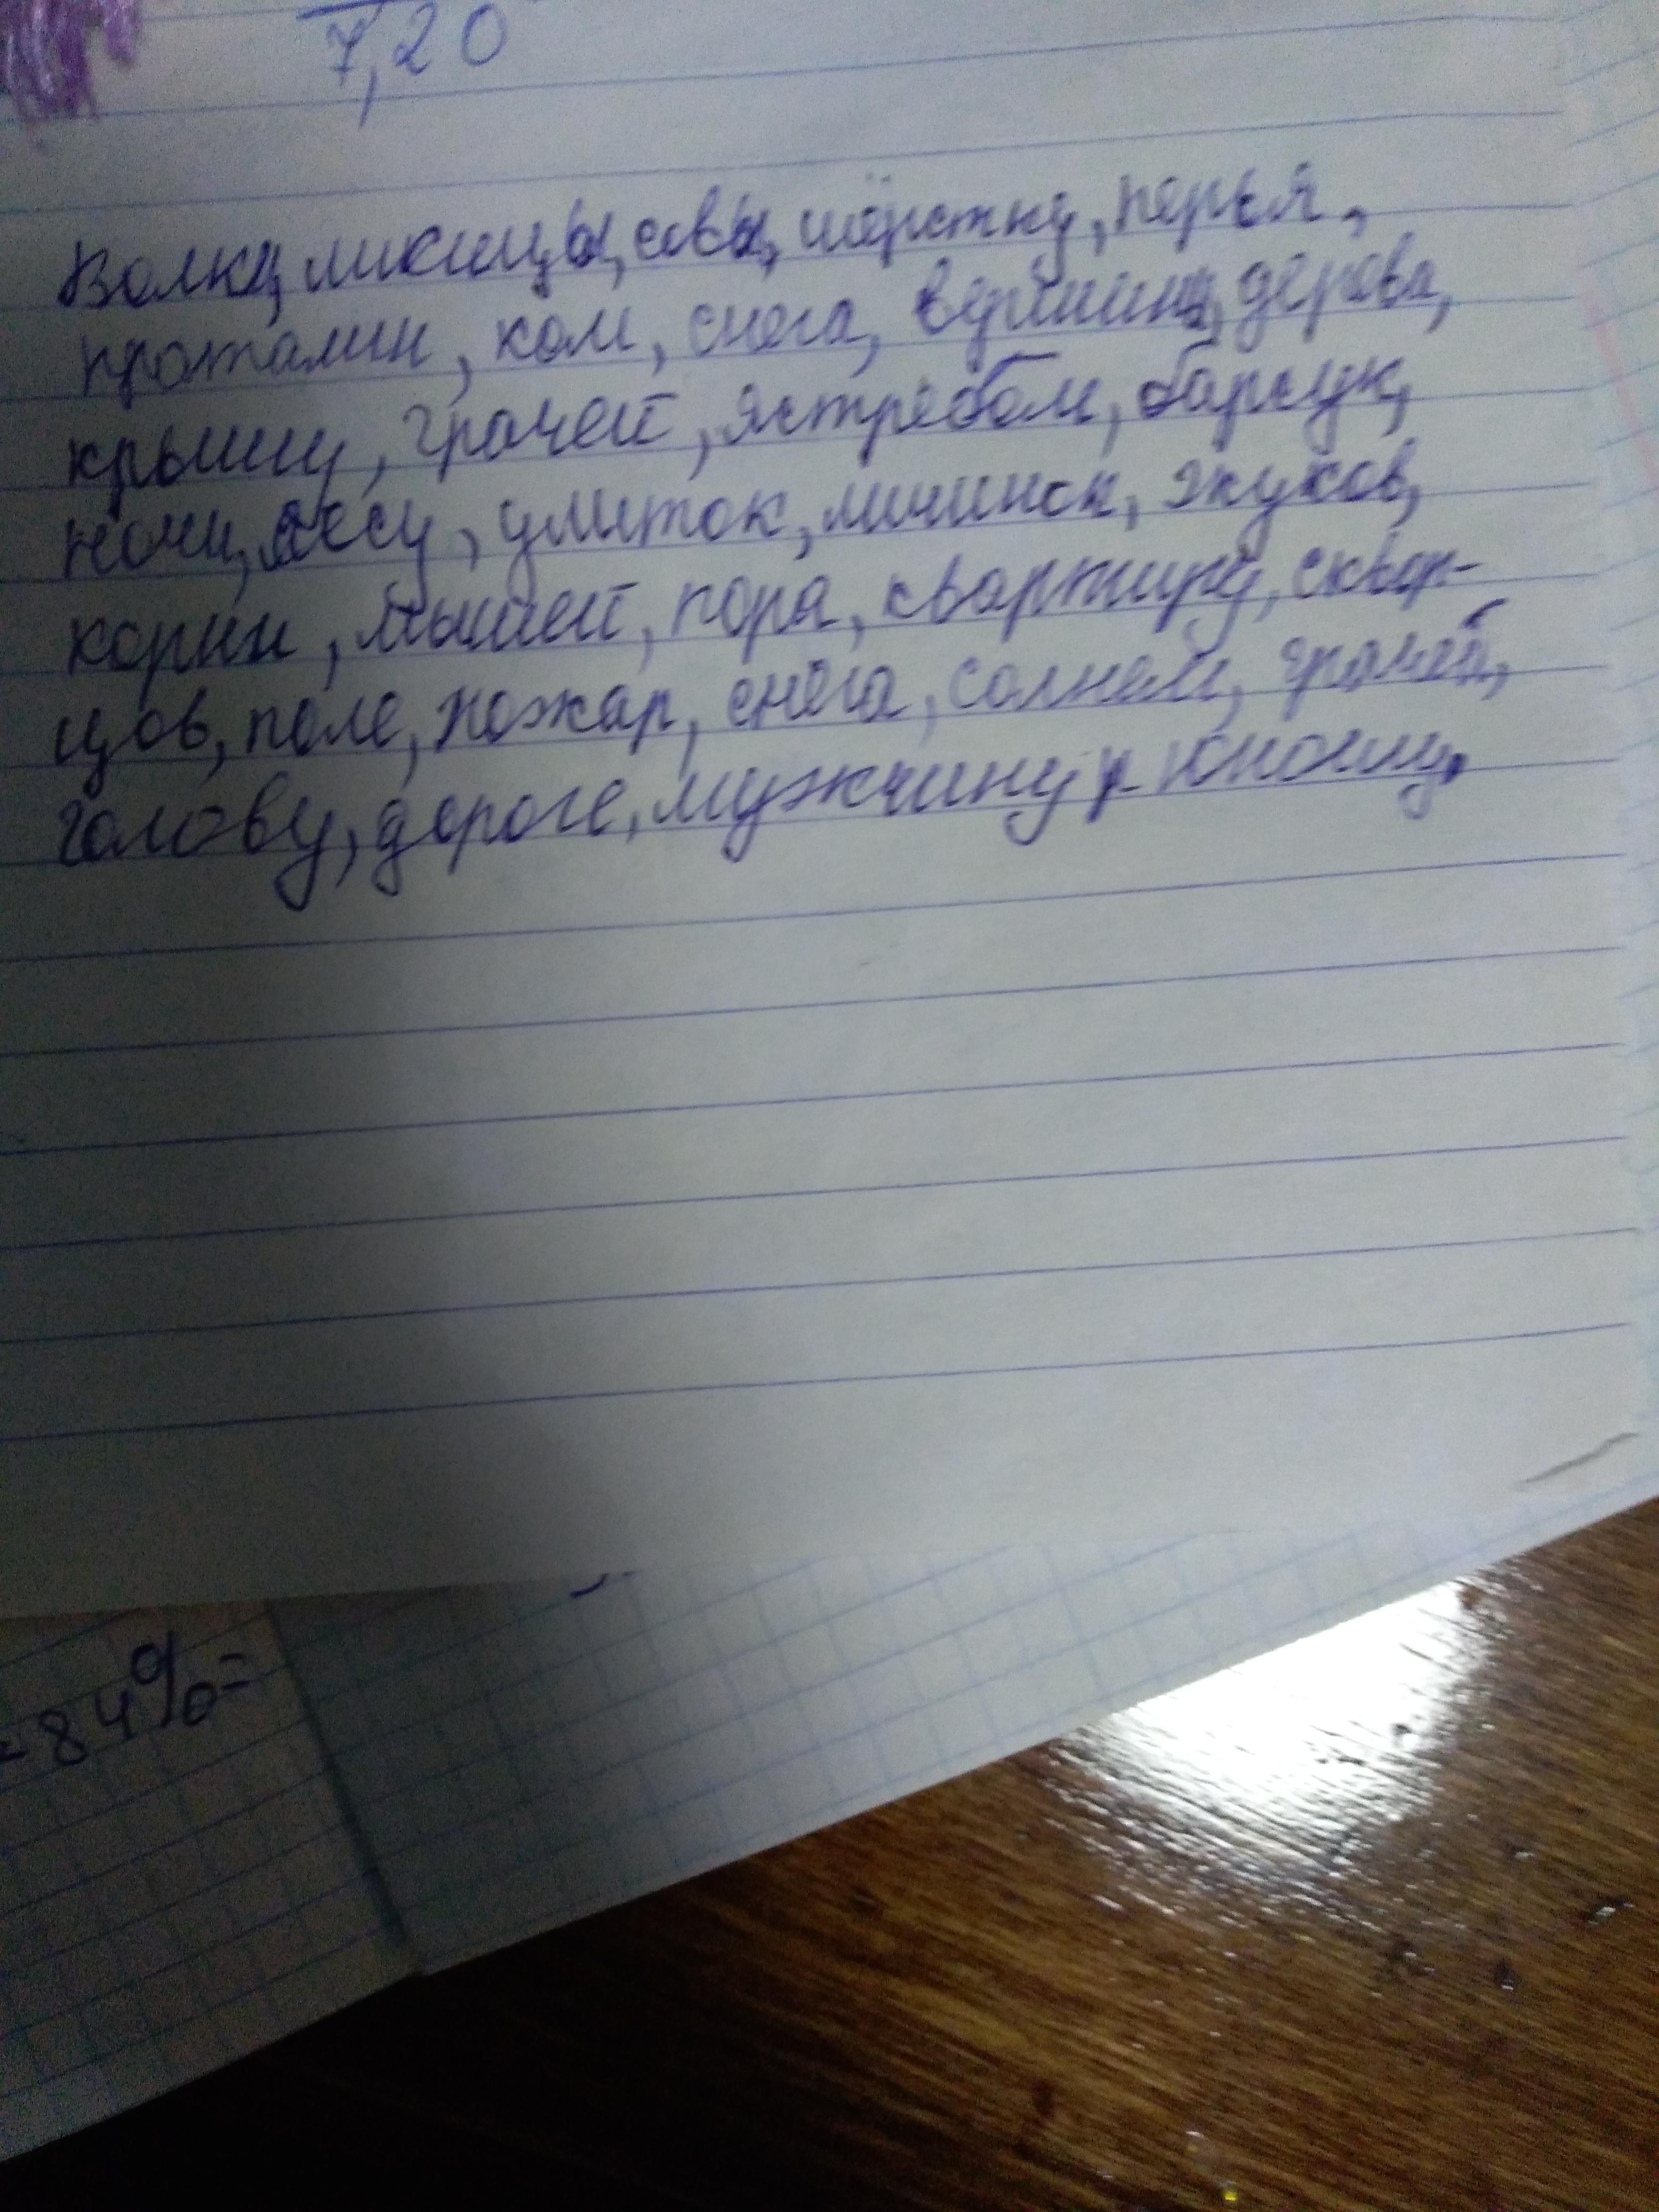 7,20
Волки, лисицы, совы, шёрстку, перья,
проталин, ком, снега, вершине, дерева,
крышу, грачей, ястребом, барсук,
ночи, лесу, улиток, личинок, жуков,
корни, мышей, пора, квартиру, сквор-
цов, поле, пожар, снега, солнем, грачей,
голову, дороге, мужчину, юношу.
84%=